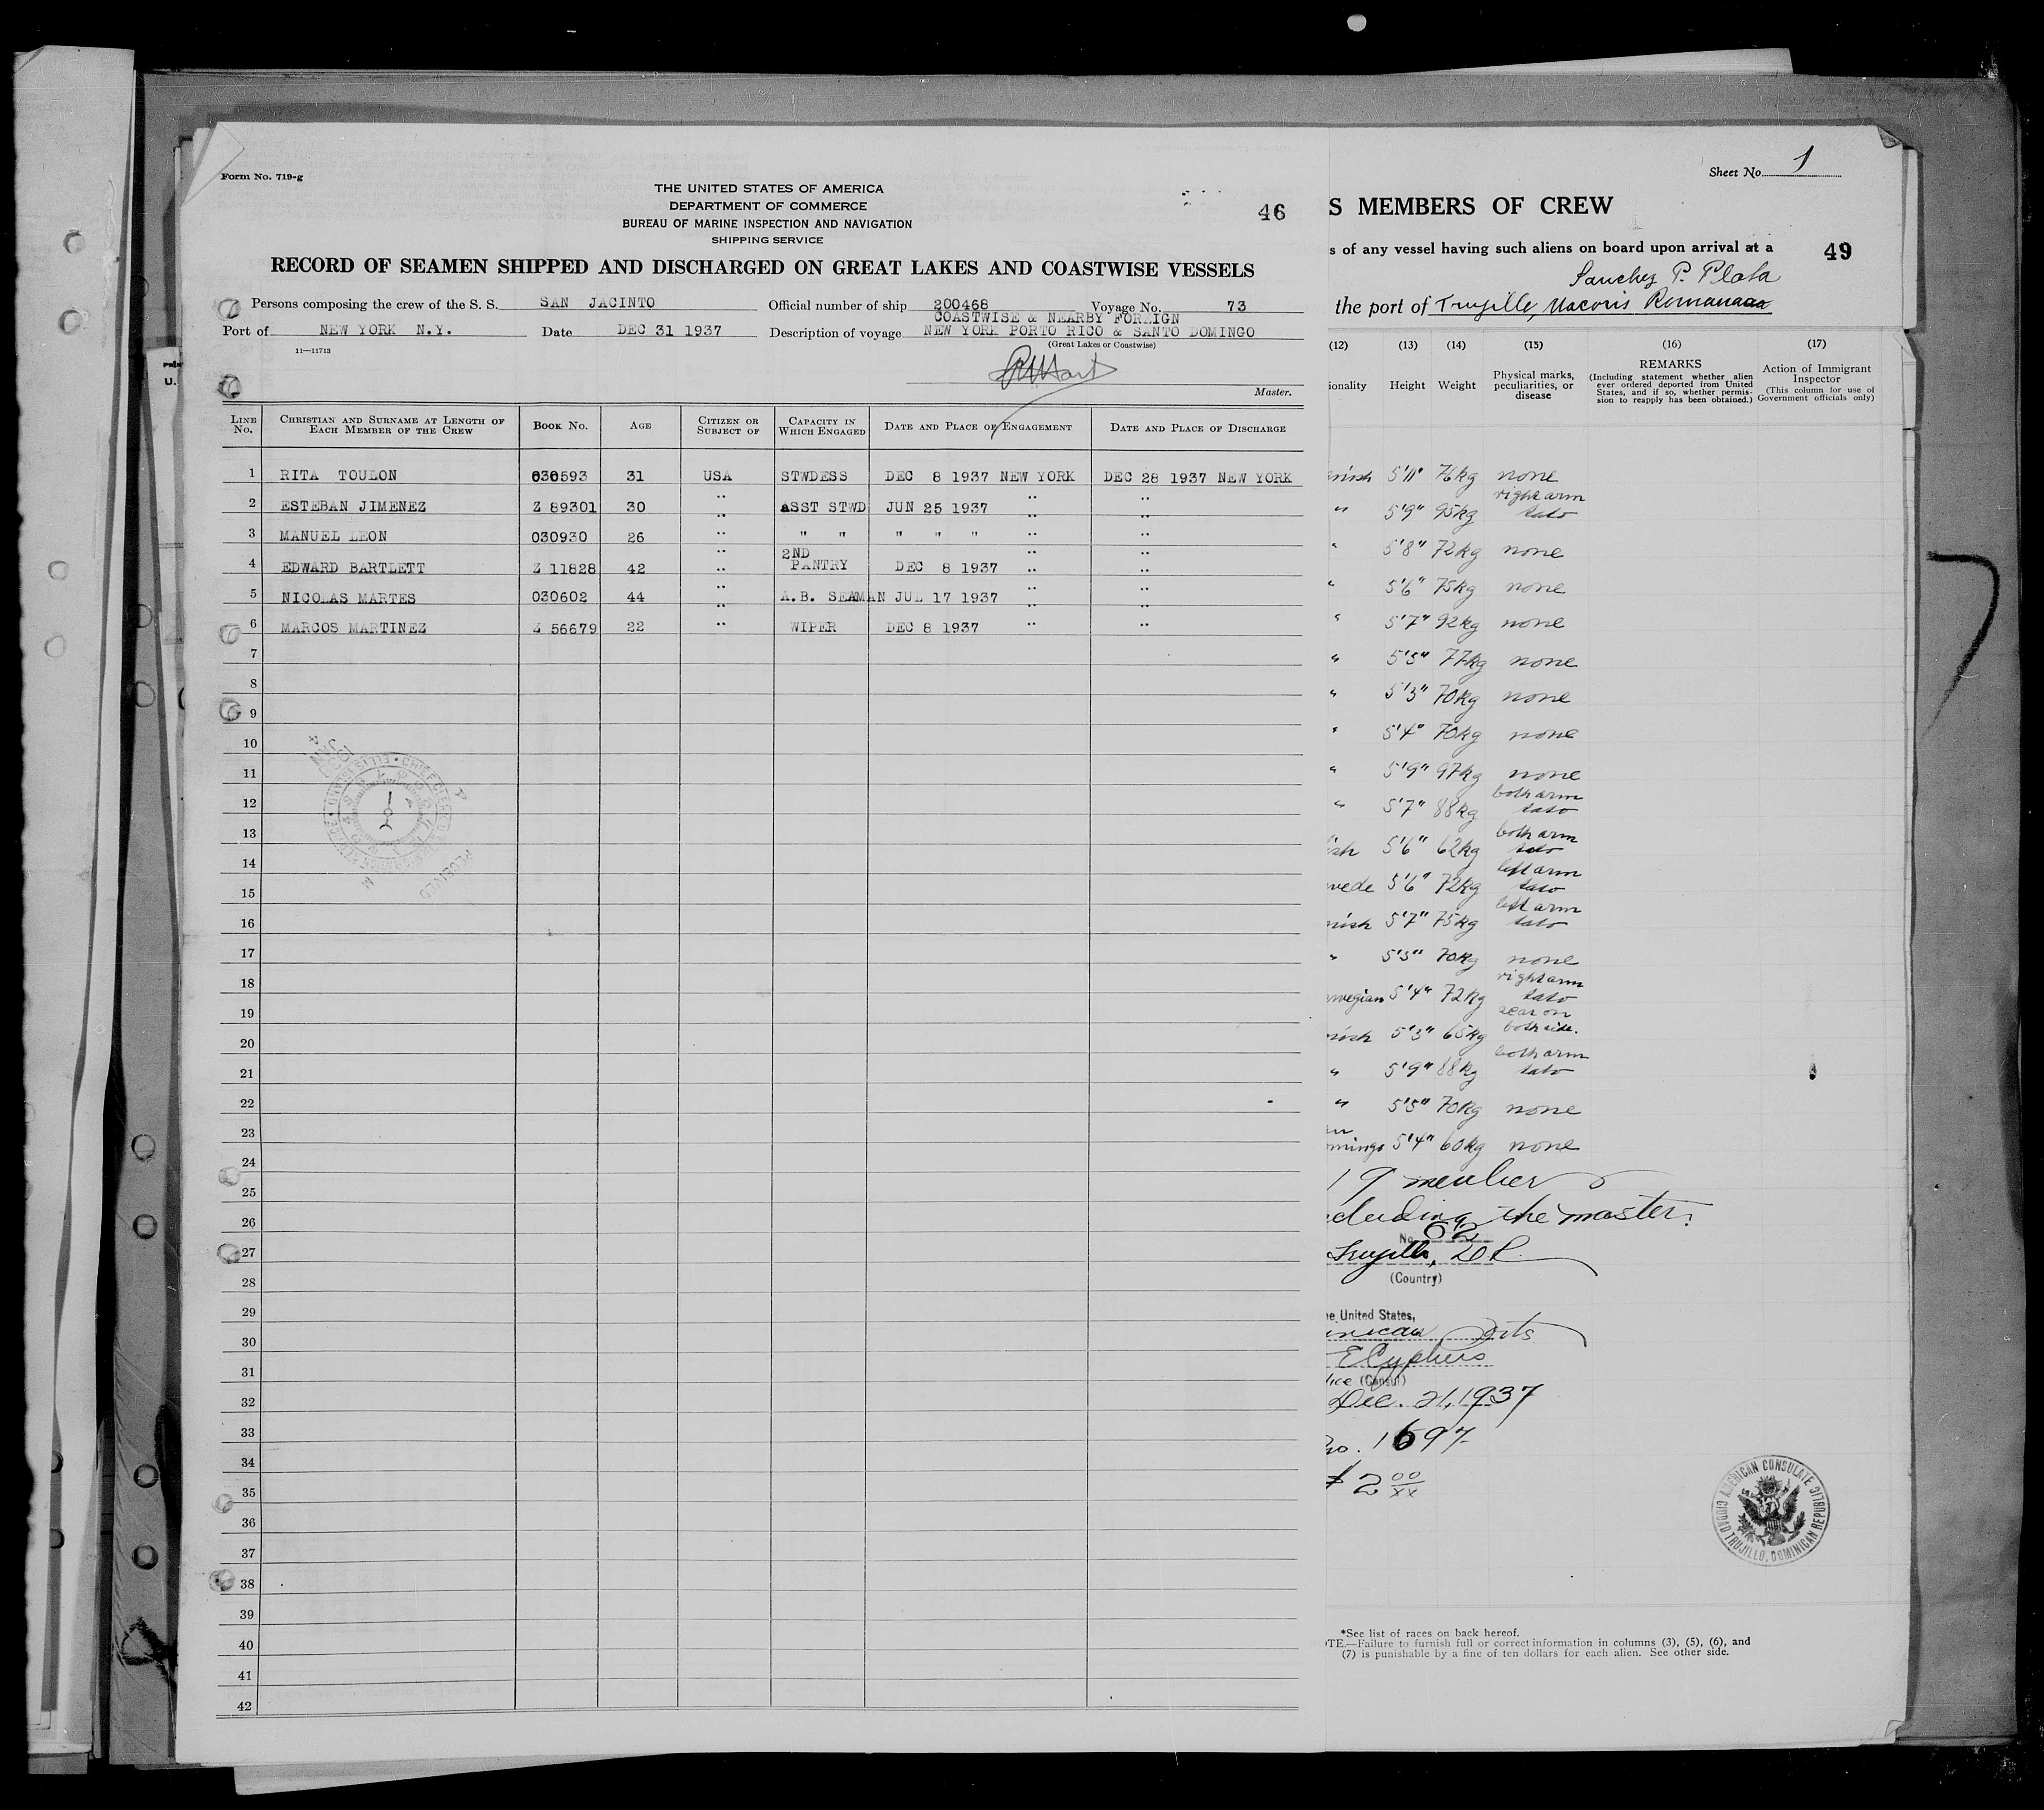 Form No. 719-g
THE UNITED STATES OF AMERICA
DEPARTMENT OF COMMERCE
BUREAU OF MARINE INSPECTION AND NAVIGATION
SHIPPING SERVICE
46
RECORD OF SEAMEN SHIPPED AND DISCHARGED ON GREAT LAKES AND COASTWISE VESSELS
Persons composing the crew of the S. S. SAN JACINTO Official number of ship 200468 Voyage No. 73
Port of NEW YORK N.Y. Date DEC 31 1937 Description of voyage COASTWISE & NEARBY FOREIGN
NEW YORK PORTO RICO & SANTO DOMINGO
(Great Lakes or Coastwise)
11—11713
Master.
LINE No. CHRISTIAN AND SURNAME AT LENGTH OF EACH MEMBER OF THE CREW BOOK No. AGE CITIZEN OR SUBJECT OF CAPACITY IN WHICH ENGAGED DATE AND PLACE OF ENGAGEMENT DATE AND PLACE OF DISCHARGE
1 RITA TOULON 030593 31 USA STWDESS DEC 8 1937 NEW YORK DEC 28 1937 NEW YORK
2 ESTEBAN JIMENEZ Z 89301 30 " ASST STWD JUN 25 1937 " "
3 MANUEL LEON 030930 26 " " " " " " " "
4 EDWARD BARTLETT Z 11828 42 " 2ND PANTRY DEC 8 1937 " "
5 NICOLAS MARTES 030602 44 " A.B. SEAMAN JUL 17 1937 " "
6 MARCOS MARTINEZ Z 56679 22 " WIPER DEC 8 1937 " "
7
8
9
10
11
12
13
14
15
16
17
18
19
20
21
22
23
24
25
26
27
28
29
30
31
32
33
34
35
36
37
38
39
40
41
42
RECEIVED
Sheet No. 1
S MEMBERS OF CREW
s of any vessel having such aliens on board upon arrival at a
49
Sanchez P. Plata
the port of Trujillo, Macoris Romana
(12) (13) (14) (15) (16) (17)
ionality Height Weight Physical marks, peculiarities, or disease REMARKS (Including statement whether alien ever ordered deported from United States, and if so, whether permission to reapply has been obtained.) Action of Immigrant Inspector (This column for use of Government officials only)
nish 5'11" 76kg none
" 5'9" 95kg right arm tato
" 5'8" 72kg none
" 5'6" 75kg none
" 5'7" 92kg none
" 5'5" 77kg none
" 5'3" 70kg none
" 5'4" 70kg none
" 5'9" 97kg none
" 5'7" 88kg both arm tato
ish 5'6" 62kg both arm tato
wede 5'6" 72kg left arm tato
nish 5'7" 75kg left arm tato
" 5'5" 70kg none
rwegian 5'4" 72kg right arm tato
nish 5'3" 65kg scar on both side.
" 5'9" 88kg both arm tato
" 5'5" 70kg none
omingo 5'4" 60kg none
19 member
cluding the master.
No. 62
Trujillo, D.R.
(Country)
he United States,
inican Ports
Vice (Consul)
Dec. 21, 1937
No. 1697
$2 00/xx
AMERICAN CONSULATE
CIUDAD TRUJILLO, DOMINICAN REPUBLIC
*See list of races on back hereof.
OTE.—Failure to furnish full or correct information in columns (3), (5), (6), and
(7) is punishable by a fine of ten dollars for each alien. See other side.